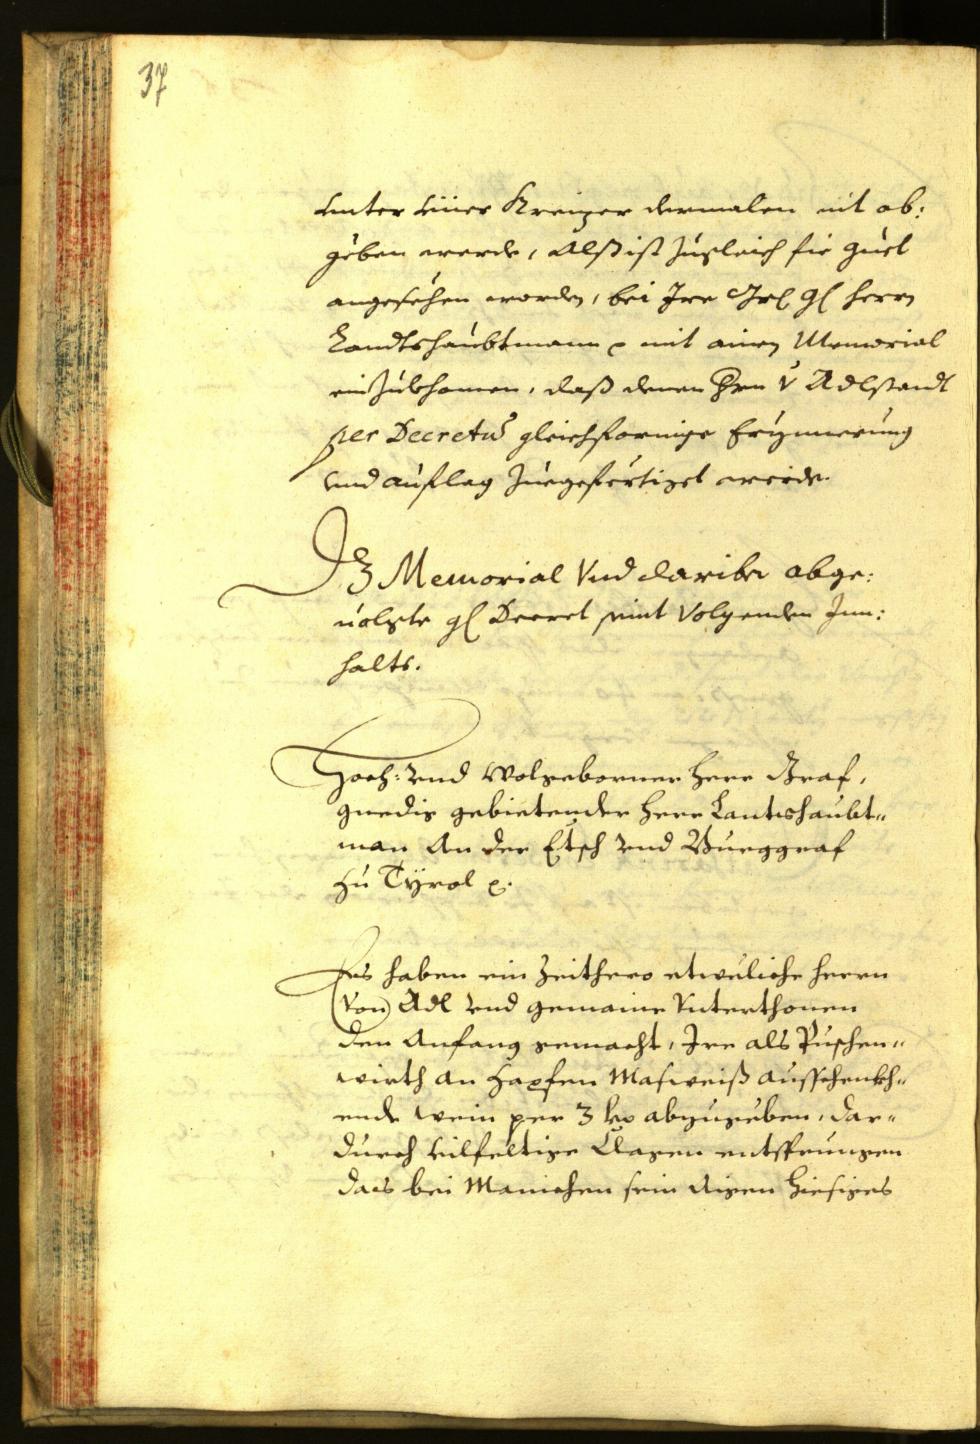 37
unter vier Kreizer dermalen nit ab:
geben werde, Alß ist zugleich für guet
angesehen worden, bei Ire Grl. gl. herrn
Landtshaubtmann p mit ainem Memorial
ein zukhomen, daß denen Hrn V Adlstandt
per Decretum gleichformige Erynnerung
und auflag zuegefertiget werde.
Dz Memorial Vnd dariber abge:
uolgte gl. Decret seint Volgenden Inn:
halts.
Hoch: vnd Wolgeborner herr Graf,
gnedig gebietender herr Landtshaubt=
man An der Etsch vnd Burggraf
zu Tÿrol p.
Es haben ein Zeithero etweliche herrn
(Von) Adl vnd gemaine Vnterthonen
den Anfang gemacht, Ire als Puschen=
wirth an Zapfen Masweiß ausschenkh=
ende wein per 3 kr abzugeben, dar=
durch vilfeltige Clagen entsprungen
das bei Manichen sein aigen hiesiges